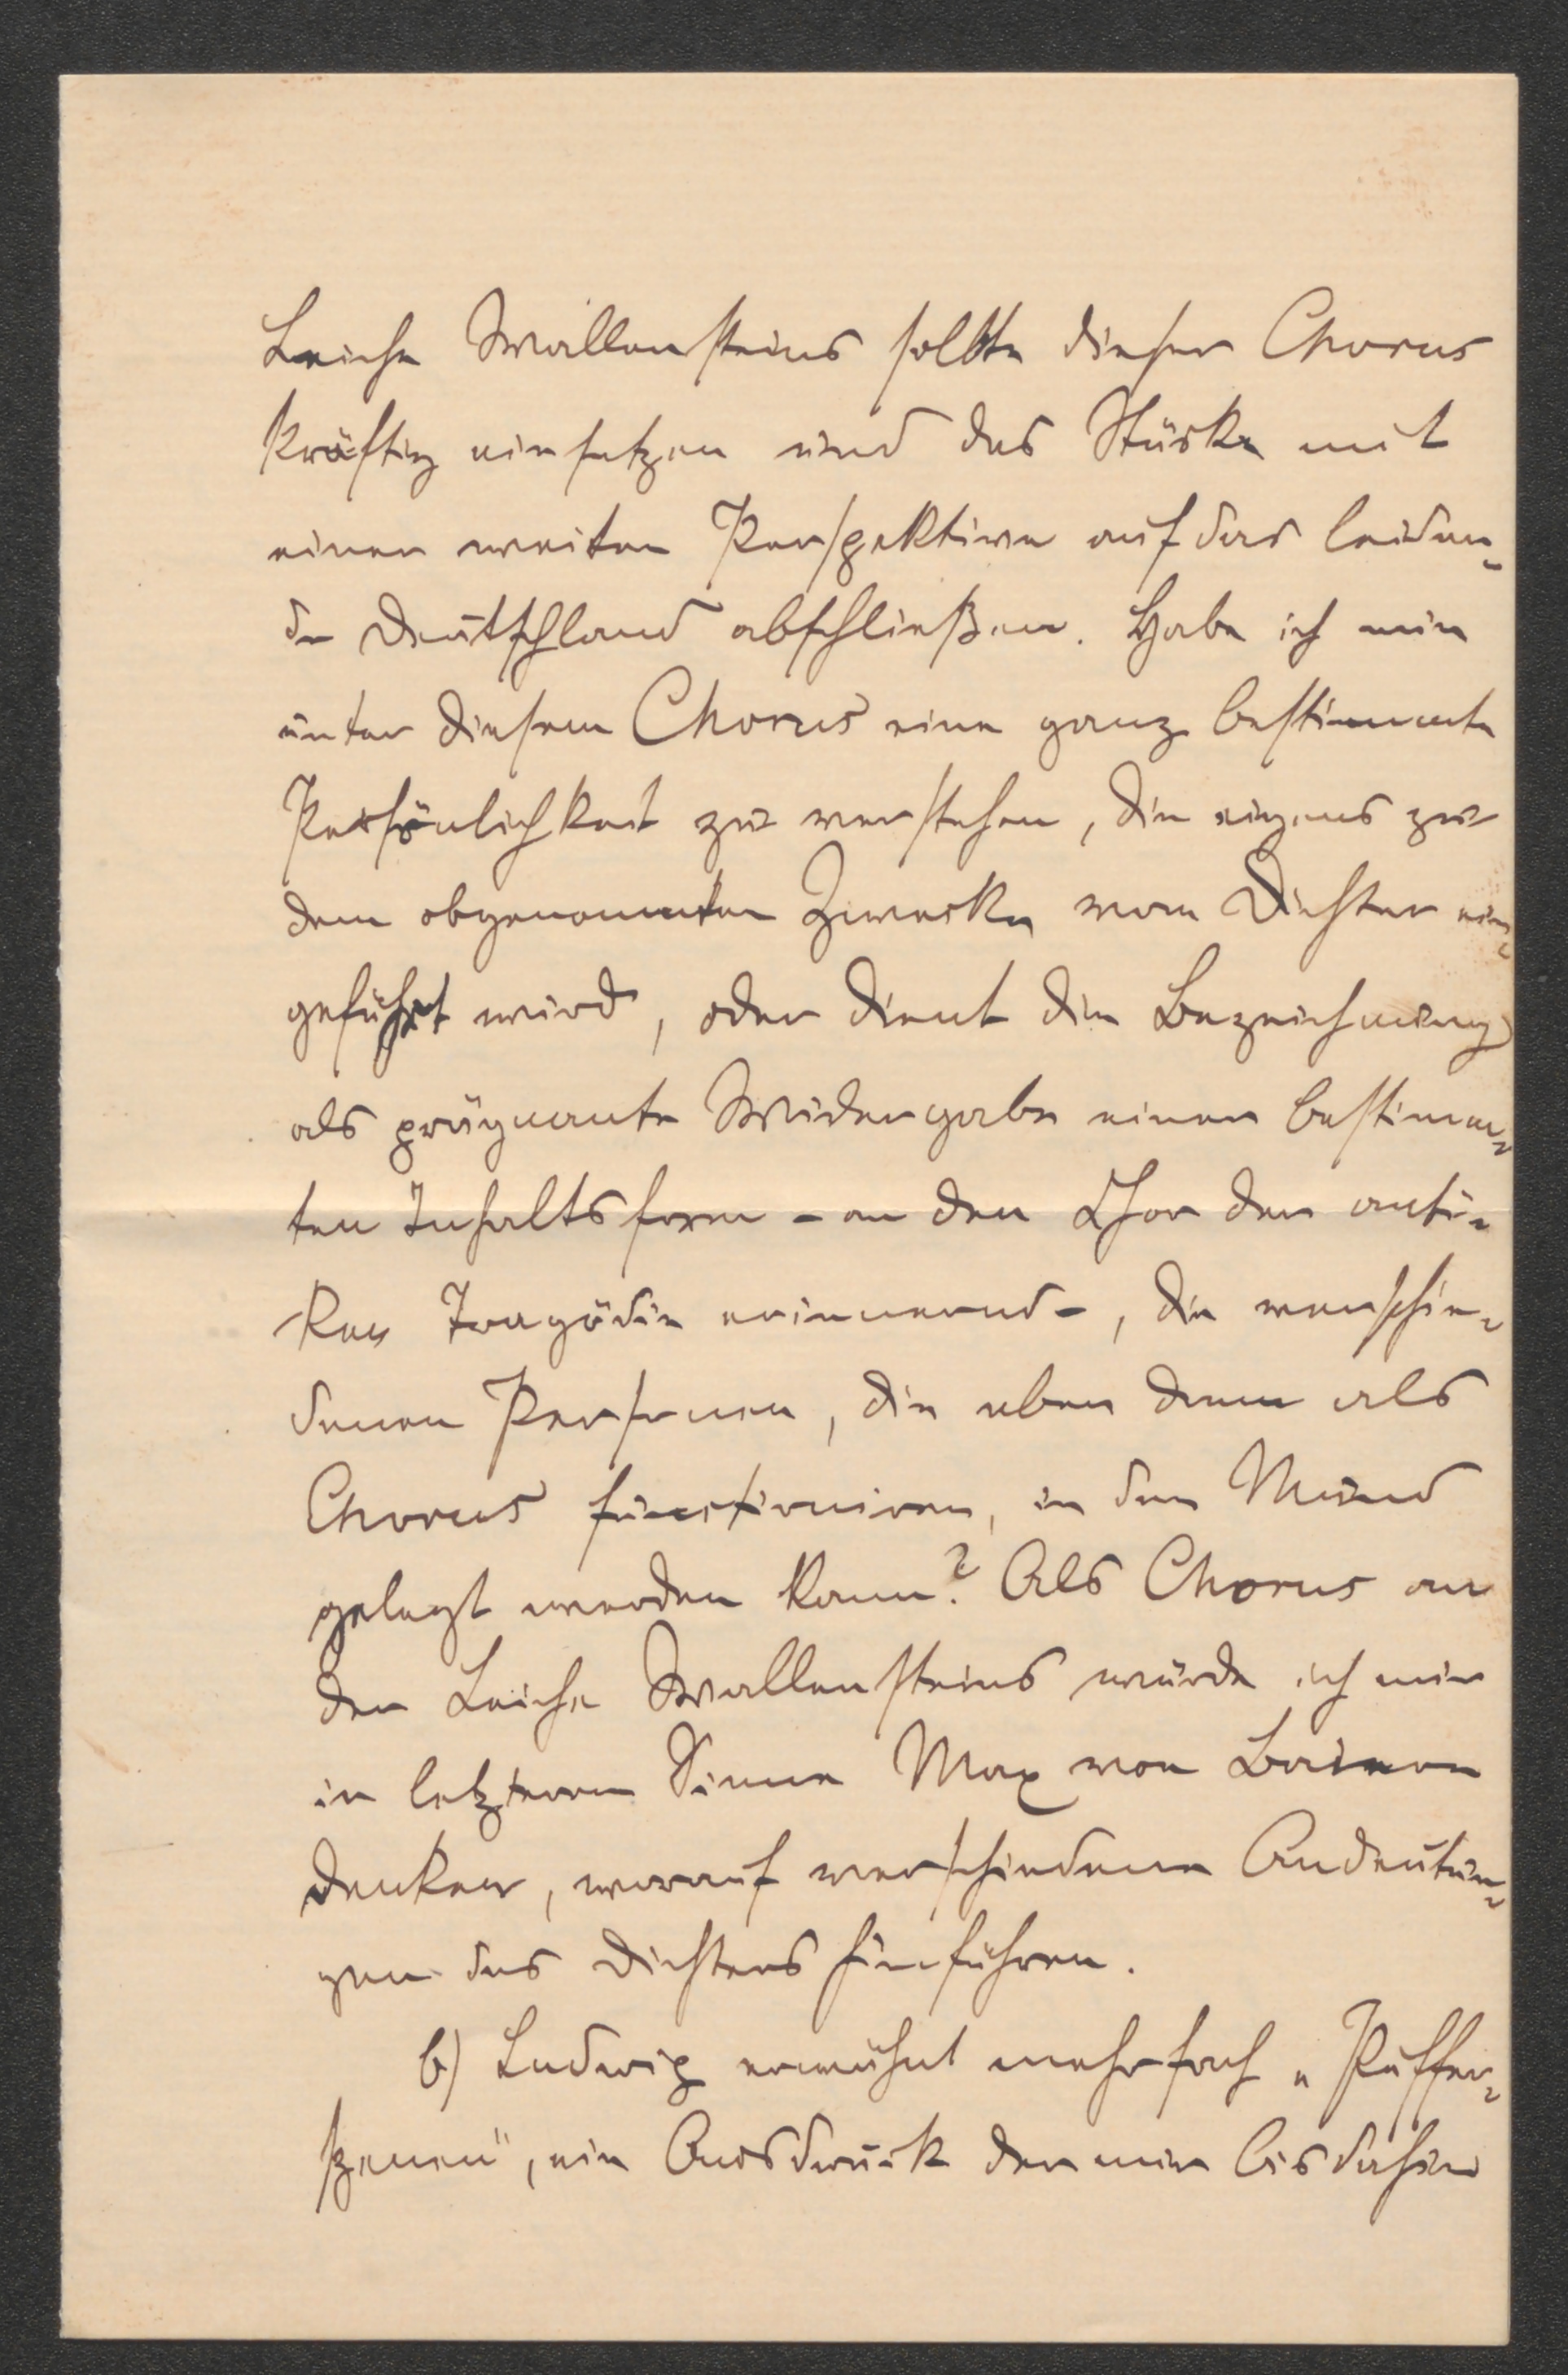 Leiche Wallensteins sollte dieser Chorus
kräftig einsetzen und das Stück mit
einer weiten Perspektive auf das leiden-
de Deutschland abschließen. Habe ich nun
unter diesem Chorus eine ganz bestimmte
Persönlichkeit zu verstehen, die eigens zu
dem obgenannten Zwecke vom Dichter ein-
geführt wird, oder dient die Bezeichnung
als prägnante Widergabe einer bestimm-
ten Inhaltsform - an den Chor der anti-
ken Tragödie erinnernd -, die verschie-
denen Personen, die eben dann als
Chorus functioniren, in den Mund
gelegt werden kann? Als Chorus an
der Leiche Wallensteins würde ich mir
in letzterm Sinne Max von Baiern
denken, worauf verschiedene Andeutun-
gen des Dichters hinführen.
b) Ludwig erwähnt mehrfach „Puffer-
szenen", ein Ausdruck der mir bis dahin